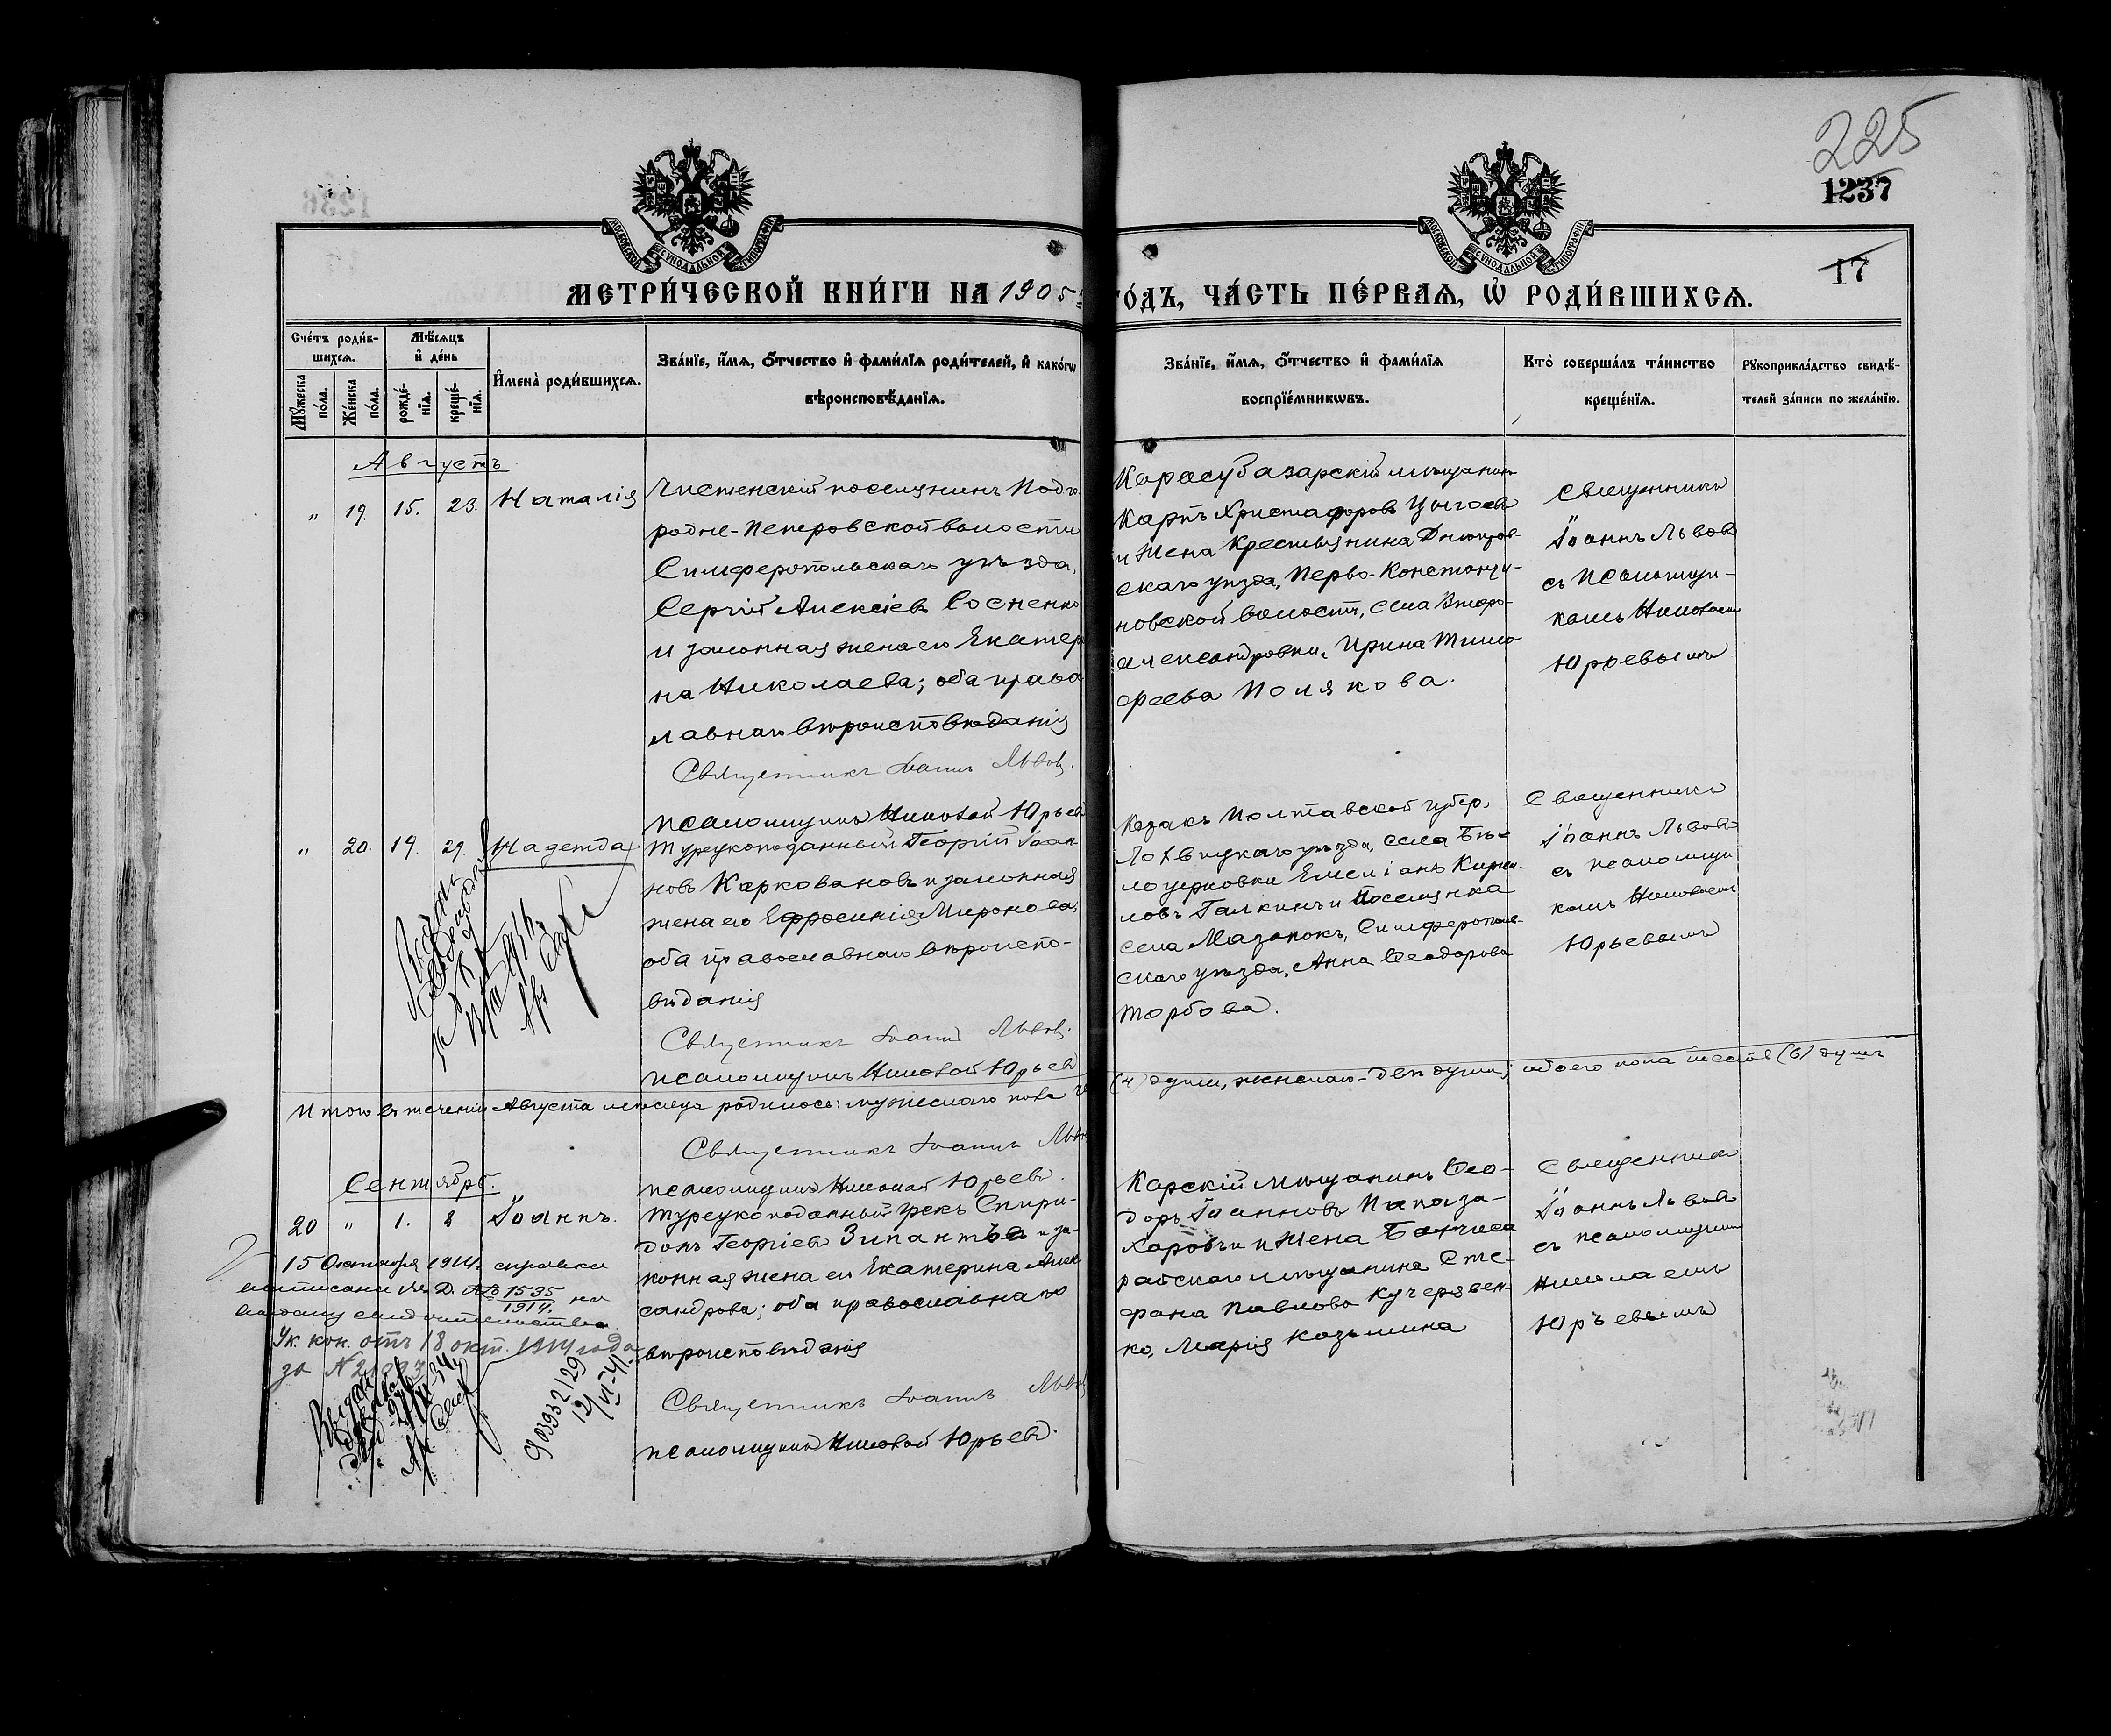 225
1237
17
МОСКОВСКОЙ СѴНОДАЛЬНОЙ ТИПОГРАФІИ
МОСКОВСКОЙ СѴНОДАЛЬНОЙ ТИПОГРАФІИ
МЕТРИ́ЧЕСКОЙ КНИ́ГИ НА 1905
ГО́ДЪ, ЧА́СТЬ ПЕ́РВАѦ, Ѽ РОДИ́ВШИХСѦ.
Сче́тъ роди́в-
шихсѧ.
Мѣ́сѧцъ
и҆ де́нь
Мꙋ́жеска
по́ла.
Же́нска
по́ла.
рожде́-
нїѧ.
креще́-
нїѧ.
И҆мена̀ роди́вшихсѧ.
Зва́нїе, и҆́мѧ, ѻ҆́тчество и҆ фами́лїѧ роди́телей, и҆ како́гѡ
вѣроисповѣ́данїѧ.
Зва́нїе, и҆́мѧ, ѻ҆́тчество и҆ фами́лїѧ
воспрїе́мникѡвъ.
Кто̀ соверша́лъ та́инство
креще́нїѧ.
Рꙋкоприкла́дство свидѣ́-
телей за́писи по жела́нїю.
Августъ
„ 19. 15. 23. Наталія
Чистенскій поселянинъ Подго-
родне-Петровской волости
Симферопольскаго уѣзда,
Сергій Алексіевъ Сосненко
и законная жена его Екатери
на Николаева; оба правос
лавнаго вѣроисповѣданія
Священникъ Іоаннъ Львовъ.
псаломщикъ Николай Юрьевъ
Карасубазарскій мѣщанинъ
Карпъ Христофоровъ
и жена крестьянина Днѣпров-
скаго уѣзда, Перво-Константи-
новской волости, села Второ-
александровки, Ирина Тимо
феева Полякова.
Священникъ
Іоаннъ Львовъ
съ псаломщи-
комъ Николаемъ
Юрьевымъ
„ 20. 19. 29. Надежда
Турецкоподанный Георгій Іоан-
новъ Каркавановъ и законная
жена его Ефросинія Миронова,
оба православнаго вѣроиспо-
вѣданія
Священникъ Іоаннъ Львовъ.
псаломщикъ Николай Юрьевъ
Казакъ Полтавской губер.
Лохвицкаго уѣзда, села Бѣ-
лоцерковки Емеліанъ Кирил-
ловъ Галкинъ и поселянка
села Мазанокъ, Симферополь-
скаго уѣзда, Анна Ѳеодорова
Торбова.
Священникъ
Іоаннъ Львовъ
съ псаломщи
комъ Николаемъ
Юрьевымъ
Итого въ теченіи Августа мѣсяца родилось: мужескаго пола че
(4) души, женскаго-двѣ души; обоего пола шесть (6) душъ
Священникъ Іоаннъ Львовъ
псаломщикъ Николай Юрьевъ.
Сентябрь.
20 „ 1. 8 Іоаннъ.
Турецкоподанный грекъ Спири-
донъ Георгіевъ и за-
конная жена его Екатерина Алек
сандрова; оба православнаго
вѣроисповѣданія
Священникъ Іоаннъ Львовъ
псаломщикъ Николай Юрьевъ.
Карскій мѣщанинъ Ѳео-
доръ Іоанновъ Папаза-
харовъ и жена Бахчиса
райскаго мѣщанина Сте-
фана Павлова Кучерявен-
ко, Марія Козьмина
Священникъ
Іоаннъ Львовъ
съ псаломщикомъ
Николаемъ
Юрьевымъ
15 Октября 1914г. справка
написана по Д. № 1535/1914. на
выдачу свидѣтельства
Ук. кон. отъ 18 окт. 1914 года
за №
9 03932129
12/VI-41.